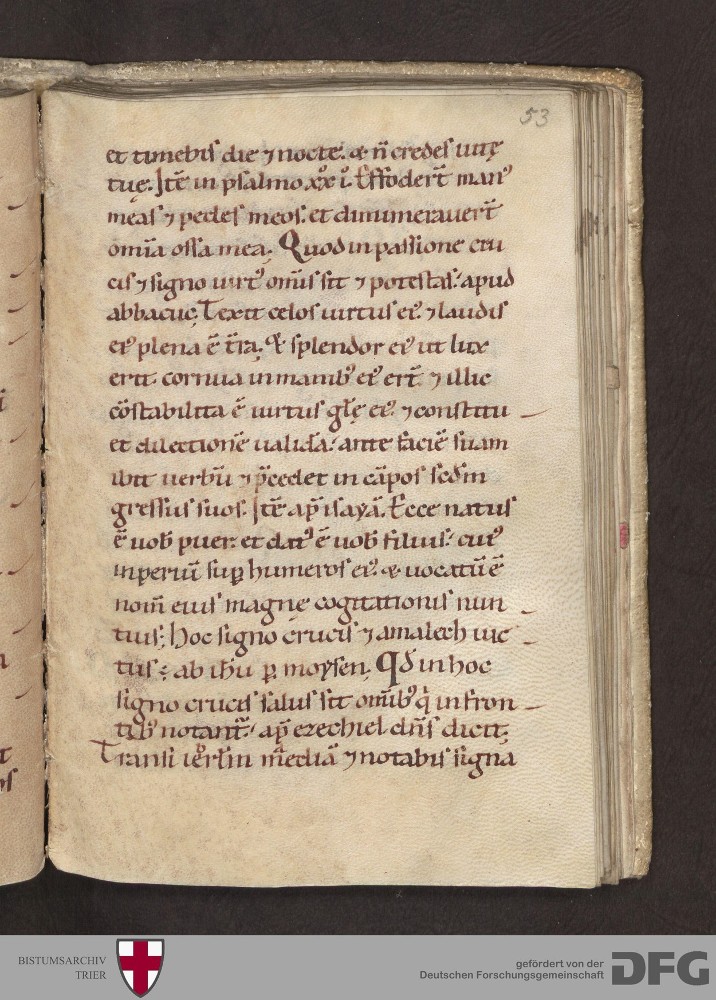 53
et timebis die ⁊ nocte. & n̄ credes uitę
tuę. Itē in psalmo xx̊ i. Effoder̄t man᾽
meas ⁊ pedes meos. et dinumerauer̄t
omīa ossa mea. Quod in passione cru
cis ⁊ signo uirt᾽ om̄is sit ⁊ potestas. apud
abbacuc. Texit celos uirtus ei᾽. ⁊ laudis
ei᾽ plena ē t̄ra. & splendor ei᾽ ut lux
erit. cornua in manib᾽ ei᾽ er̄t. ⁊ illic
cōstabilita ē uirtus gl̄ę ei᾽. ⁊ constitu
et dilectionē ualidā. ante faciē suam
ibit uerbū ⁊ p̄cedet in cāpos scd̄m
gressus suos. Itē ap̄ isayā. Ecce natus
ē uob̄ puer. et dat᾽ ē uob̄ filius. cui᾽
inperiū sup̱ humeros ei᾽. & uocatū ē
nom̄ eius magnę cogitationis nun
tius. Hoc signo crucis ⁊ amalech uic
tus ē ab ih̄u p̱ moysen. Qd̄ in hoc
signo crucis salus sit om̄ib᾽ q̇ in fron
tib᾽ notant᾽. ap̄ ezechiel dn̄s dicit.
Transi ierl̄m mediā ⁊ notabis signa
BISTUMSARCHIV
TRIER
gefördert von der
Deutschen Forschungsgemeinschaft
DFG